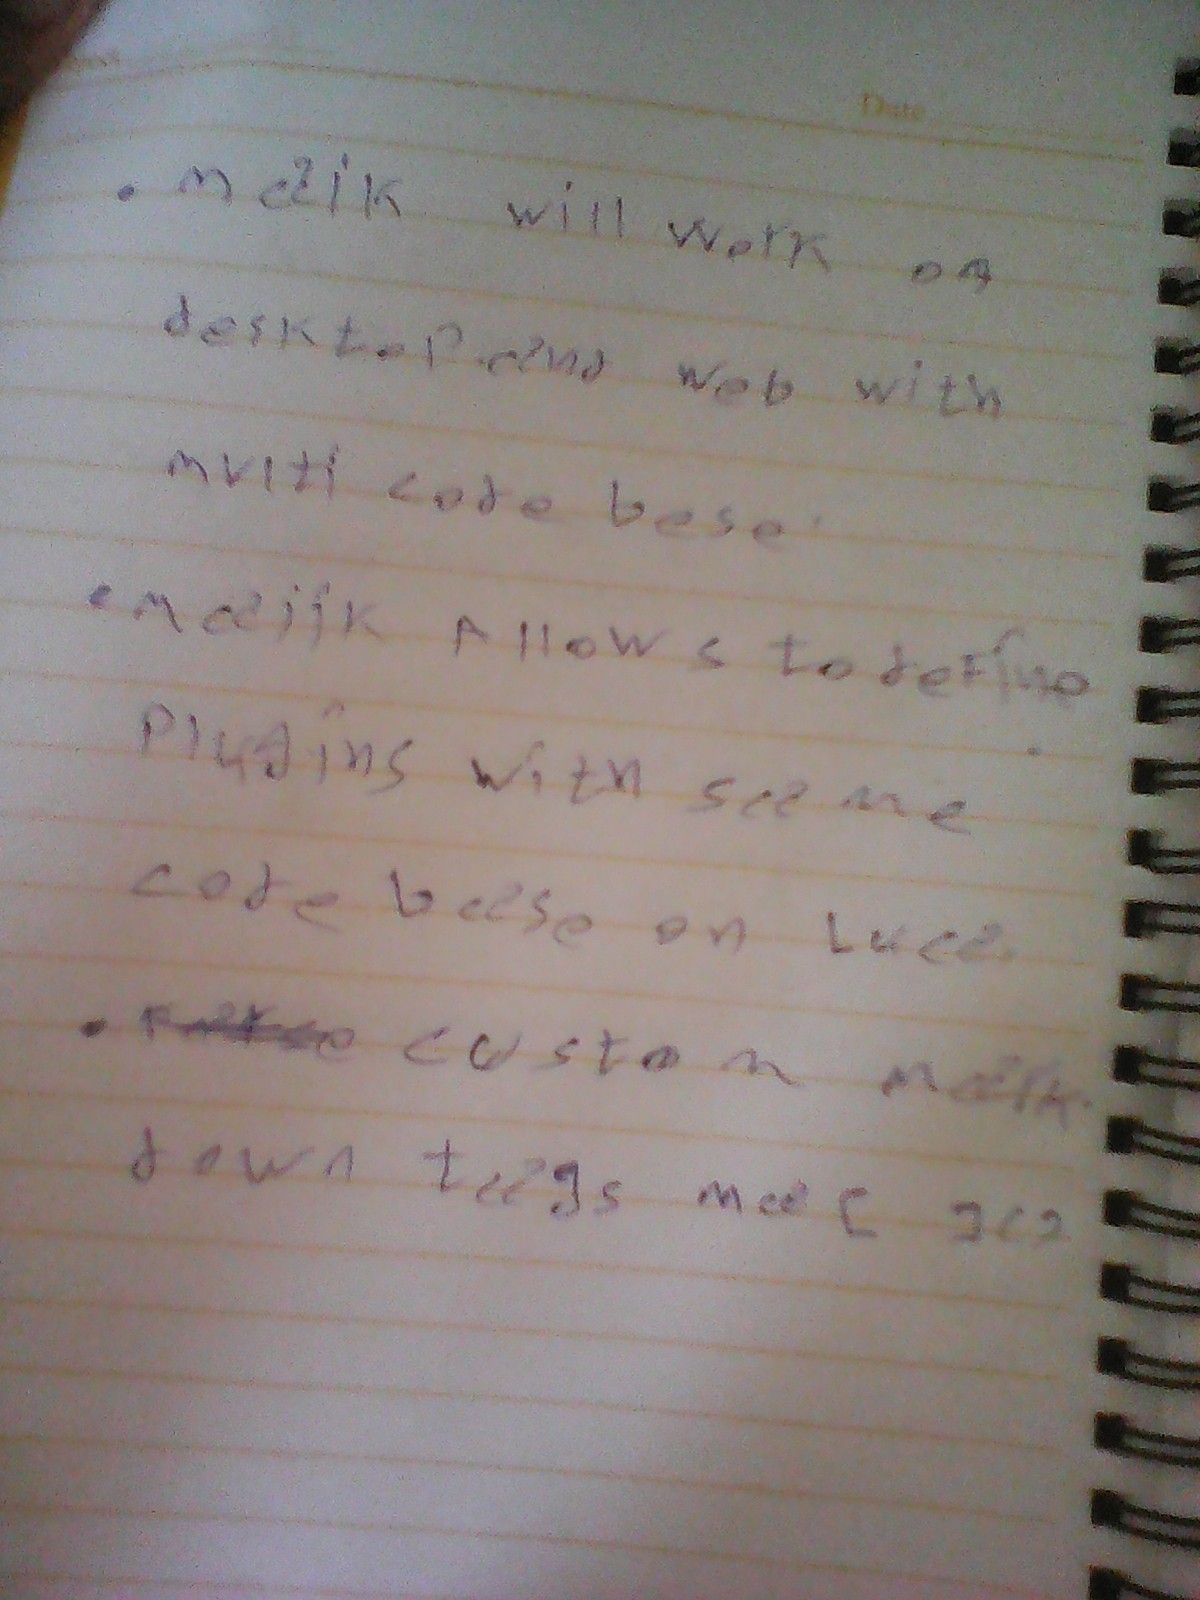 Date
• maik will work on
desktop and web with
multi code bese.
• maijk Allows to define
Plugins with same
code base on Luca.
• custom maik
down tags